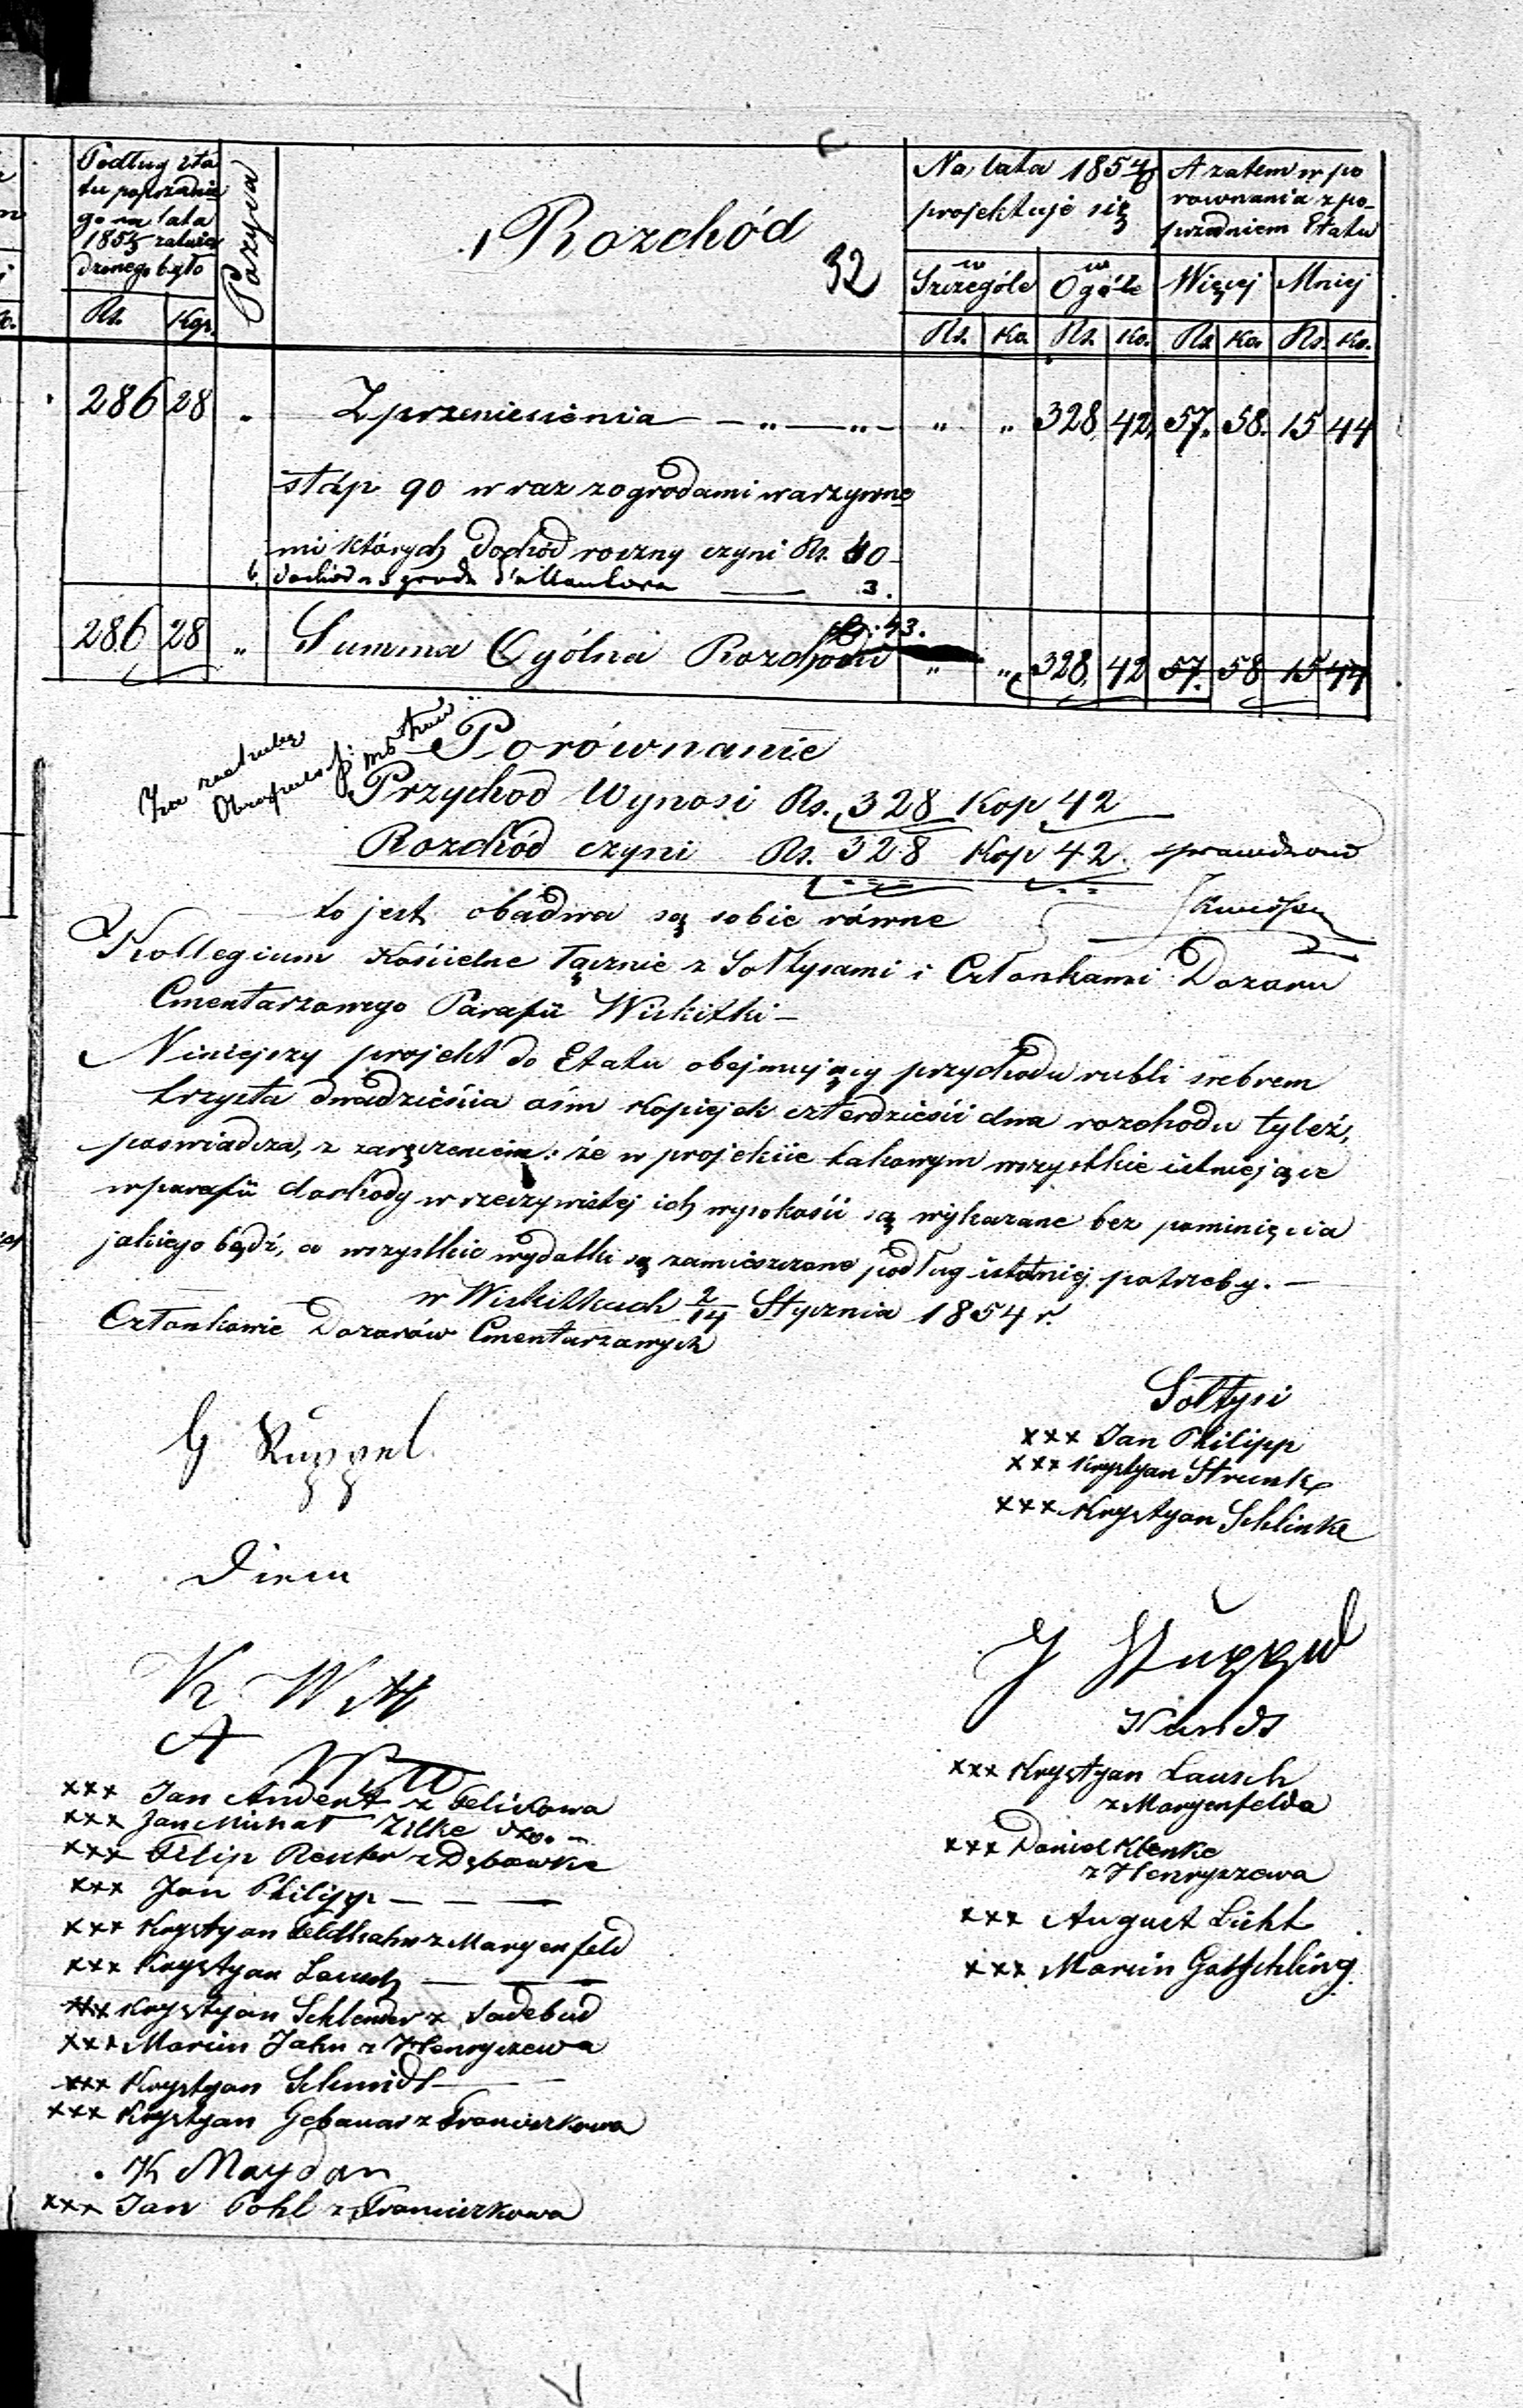 Podług eta
tu poprzednie
go na lata
185 zatwier
dzonego było
Rs. Kop.
Pozycya
Rozchód
32
Na lata 1854/6
projektuje się
w Szczególe
w Ogóle
A zatem w po
równaniu z po-
przedniem Etatu
Więcej Mniej
Rs. Ko. Rs. Ko. Rs. Ko. Rs. Ko.
286 28 „ Z przeniesienia — „ — „ — „ „ 328 42 57. 58. 15 44
stóp 90 wraz z ogrodami warzywne
mi których dochód roczny czyni Rs. 40
6. dochód z 3.
43.
286 28 „ Summa Ogólna Rozchodu „ „ 328 42 57. 58 15 44
Porównanie
Przychod Wynosi Rs. 328 Kop 42
Rozchód czyni Rs. 328 Kop 42. sprawdzono
to jest obadwa są sobie równe
Kollegium Kościelne łącznie z Sołtysami i Członkami Dozoru
Cmentarzowego Parafii Wiskitki —
Niniejszy projekt do Etatu obejmujący przychodu rubli srebrem
trzysta dwadzieścia ośm kopiejek czterdzieści dwa rozchodu tyleż,
poswiadcza, z zaręczeniem: że w projekcie takowym wszystkie istniejące
w parafii dochody w rzeczywistej ich wysokości są wykazane bez pominięcia
jakiego bądź, a wszystkie wydatki są zamieszczone podług istotniej potrzeby. —
w Wiskitkach 2/14 Stycznia 1854 r.
Członkowie Dozorów Cmentarzowych
Sołtysi
xxx Jan Philipp
xxx Krystyan Strunk
xxx Krystyan Schlinke
G Kuppel
K Witt
A Witt
xxx Jan Andert z Felixowa
xxx Jan Michał Zilke dto. —
xxx Filip Reuter z Dębowke
xxx Jan Philipp — — —
xxx Krystyan Feldhahn z Maryenfeld
xxx Krystyan Lausch — —
xxx Krystyan Schlender z Sadebud
xxx Marcin Jahn z Henryszewa
xxx Krystyan Schmidt —
xxx Krystyan Gebauer z Franciszkowa
K Maydan
xxx Jan Pohl z Franciszkowa
Kundt
xxx Krystyan Lausch
z Maryenfelda
xxx Daniel Klenke
z Henryszewa
xxx August Licht
xxx Marcin Gatschling